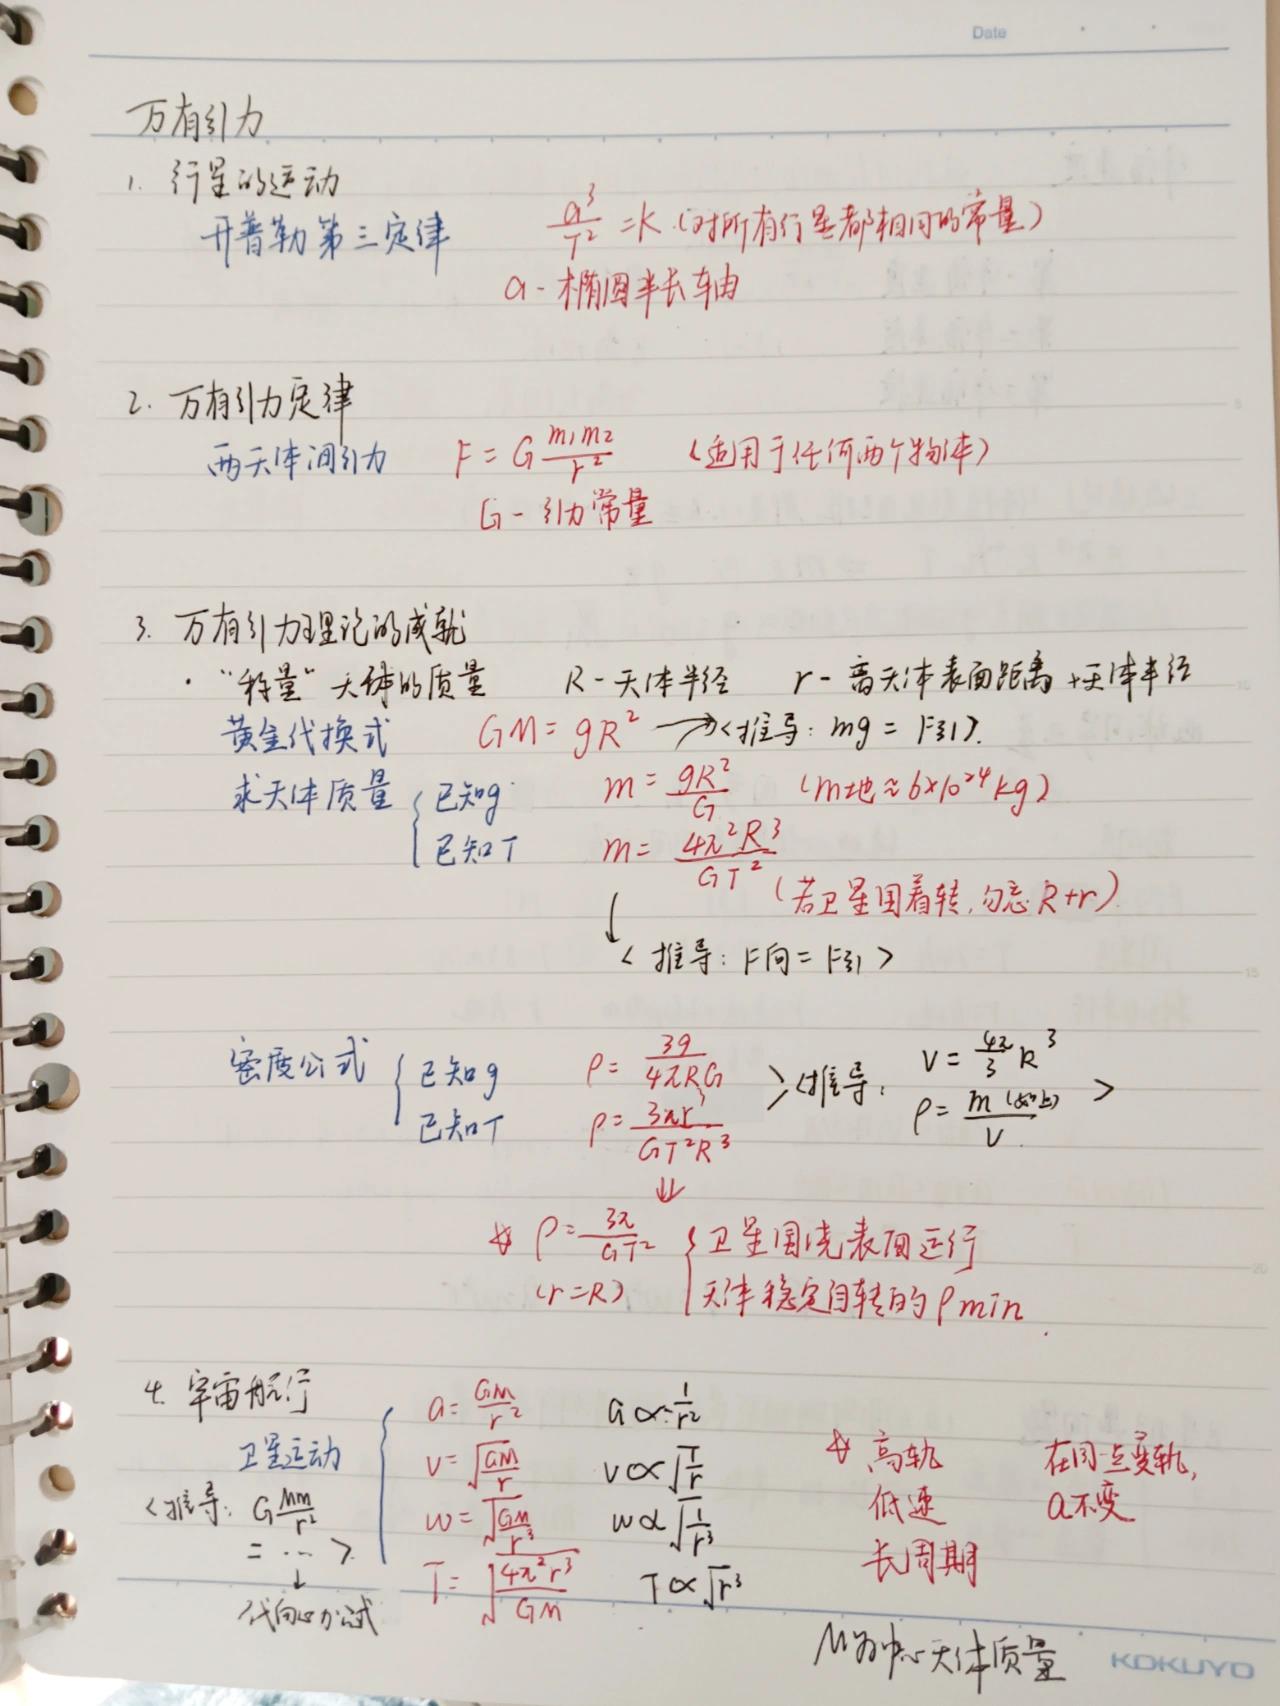 Date
万有引力
1. 行星的运动
开普勒第三定律 a³/T² = K (对所有行星都相同的常量)
a - 椭圆半长轴
2. 万有引力定律
两天体间引力 F = G m₁m₂/r² (适用于任何两个物体)
G - 引力常量
3. 万有引力理论的成就
· "称量"天体的质量 R - 天体半径 r - 离天体表面距离 + 天体半径
黄金代换式 GM = gR² → <推导: mg = F引>.
求天体质量 { 已知g m = gR²/G (m地 ≈ 6×10²⁴kg)
已知T m = 4π²R³/GT²
(若卫星围着转, 勿忘R+r)
↓
<推导: F向 = F引>
密度公式 { 已知g ρ = 3g/4πRG > <推导: V = 4π/3 R³
已知T ρ = 3πr³/GT²R³ ρ = m(如上)/V >
⇓
ρ = 3π/GT² { 卫星围绕表面运行
(r=R) 天体稳定自转的ρmin.
4. 宇宙航行 a = GM/r² a ∝ 1/r²
卫星运动 v = √(GM/r) v ∝ √(1/r) 高轨 在同一点变轨,
<推导: G Mm/r² w = √(GM/r³) w ∝ √(1/r³) 低速 a不变
= … > T = √(4π²r³/GM) T ∝ √r³ 长周期
↓
代向心力公式
M为中心天体质量
KOKUYO